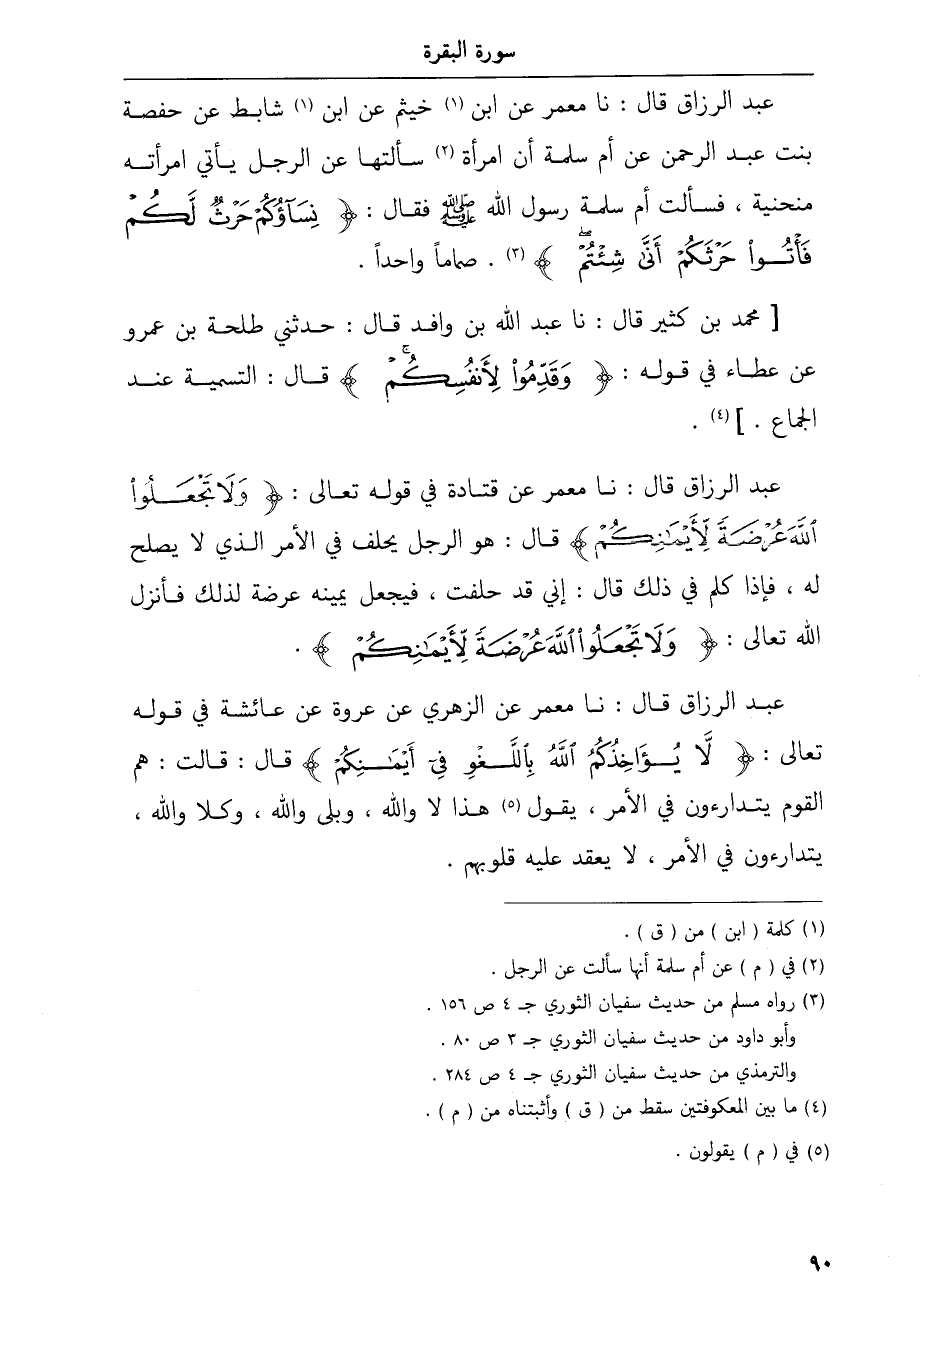 سورة البقرة
عبد الرزاق قال : نا معمر عن ابن (١) خيثم عن ابن (١) شابط عن حفصة
بنت عبد الرحمن عن أم سلمة أن امرأة (٢) سألتها عن الرجل يأتي امرأته
منحنية ، فسألت أم سلمة رسول الله ﷺ فقال : ﴿ نِسَآؤُكُمْ حَرْثٌ لَّكُمْ
فَأْتُوا۟ حَرْثَكُمْ أَنَّىٰ شِئْتُمْ ۖ ﴾ (٣) . صماماً واحداً .
[ محمد بن كثير قال : نا عبد الله بن وافد قال : حدثني طلحة بن عمرو
عن عطاء في قوله : ﴿ وَقَدِّمُوا۟ لِأَنفُسِكُمْ ۚ ﴾ قال : التسمية عند
الجماع . ] (٤) .
عبد الرزاق قال : نا معمر عن قتادة في قوله تعالى : ﴿ وَلَا تَجْعَلُوا۟
ٱللَّهَ عُرْضَةً لِّأَيْمَـٰنِكُمْ ﴾ قال : هو الرجل يحلف في الأمر الذي لا يصلح
له ، فإذا كلم في ذلك قال : إني قد حلفت ، فيجعل يمينه عرضة لذلك فأنزل
الله تعالى : ﴿ وَلَا تَجْعَلُوا۟ ٱللَّهَ عُرْضَةً لِّأَيْمَـٰنِكُمْ ﴾ .
عبد الرزاق قال : نا معمر عن الزهري عن عروة عن عائشة في قوله
تعالى : ﴿ لَّا يُؤَاخِذُكُمُ ٱللَّهُ بِٱللَّغْوِ فِىٓ أَيْمَـٰنِكُمْ ﴾ قال : قالت : هم
القوم يتدارءون في الأمر ، يقول (٥) هذا لا والله ، وبلى والله ، وكلا والله ،
يتدارءون في الأمر ، لا يعقد عليه قلوبهم .
(١) كلمة ( ابن ) من ( ق ) .
(٢) في ( م ) عن أم سلمة أنها سألت عن الرجل .
(٣) رواه مسلم من حديث سفيان الثوري جـ ٤ ص ١٥٦ .
وأبو داود من حديث سفيان الثوري جـ ٣ ص ٨٠ .
والترمذي من حديث سفيان الثوري جـ ٤ ص ٢٨٤ .
(٤) ما بين المعكوفتين سقط من ( ق ) وأثبتناه من ( م ) .
(٥) في ( م ) يقولون .
٩٠